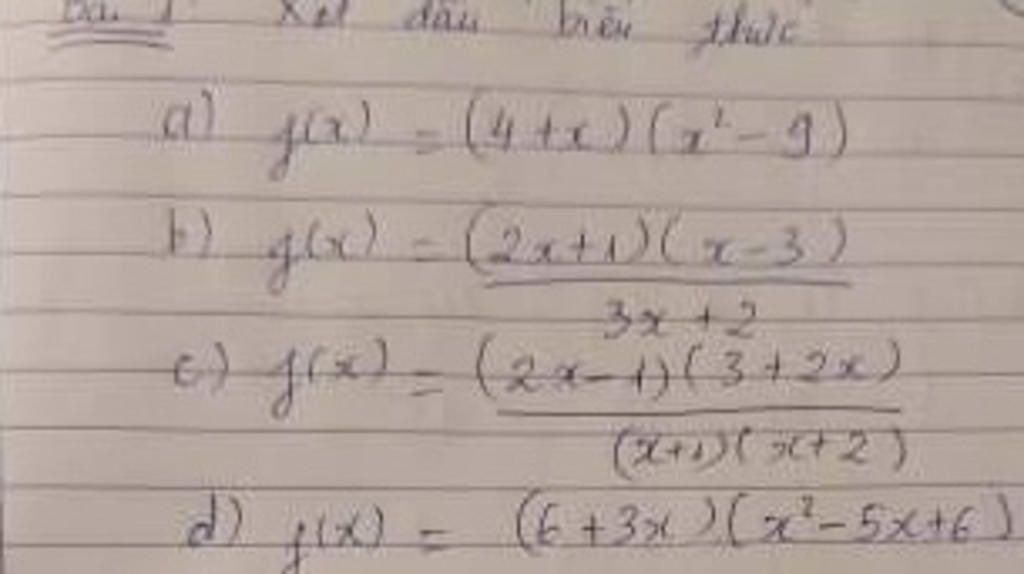 Bài 1 Xét dấu biểu thức
a) f(x) = (4+x)(x²-9)
b) g(x) = (2x+1)(x-3)
3x+2
c) f(x) = (2x-1)(3+2x)
(x+1)(x+2)
d) f(x) = (6+3x)(x²-5x+6)